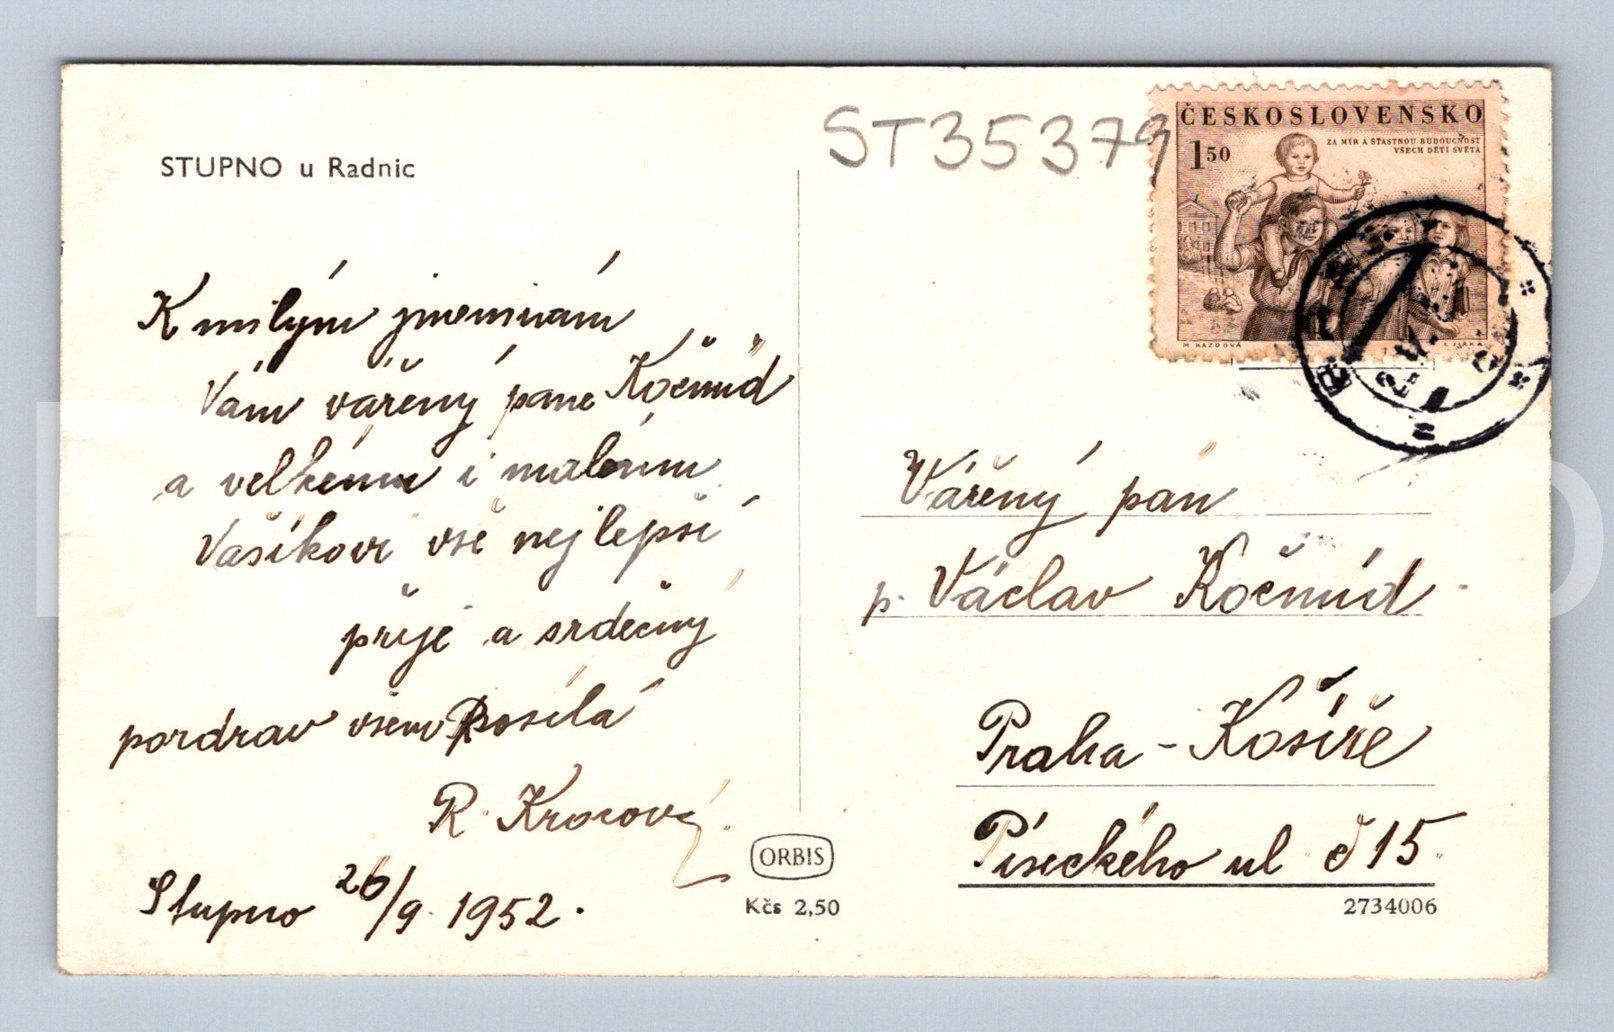 STUPNO u Radnic
K milým jmeninám
Vám vářený pane Kočmíd
a velkému i malému
Vašíkovi vše nejlepší
přeje a srdečný
pozdrav všem posílá
R. Krocová.
Stupno 26/9. 1952.
ORBIS
Kčs 2,50
ST35379
ČESKOSLOVENSKO
1 50
ZA MÍR A ŠŤASTNOU BUDOUCNOST
VŠECH DĚTÍ SVĚTA
Vářený pán
p. Václav Kočmíd
Praha - Košíře
Píseckého ul č 15.
2734006